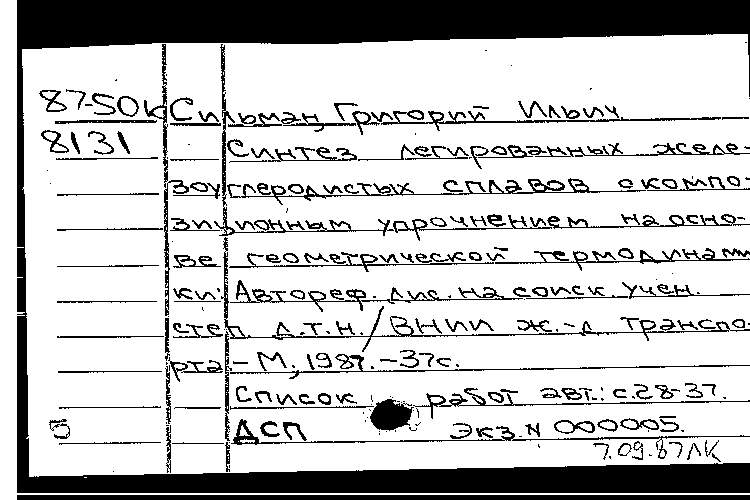 87-50к Сильман, Григорий Ильич
8131 Синтез легированных желе-
зоуглеродистых сплавов с компо-
зиционным упрочнением на осно-
ве геометрической термодинами
ки: Автореф. дис. на соиск. учен.
степ. д.т.н. / ВНИИ ж.-д. транспо-
рта. - М., 1987. - 37с.
Список работ авт.: с.28-37.
5 ДСП экз. N 000005.
7.09.87ЛК